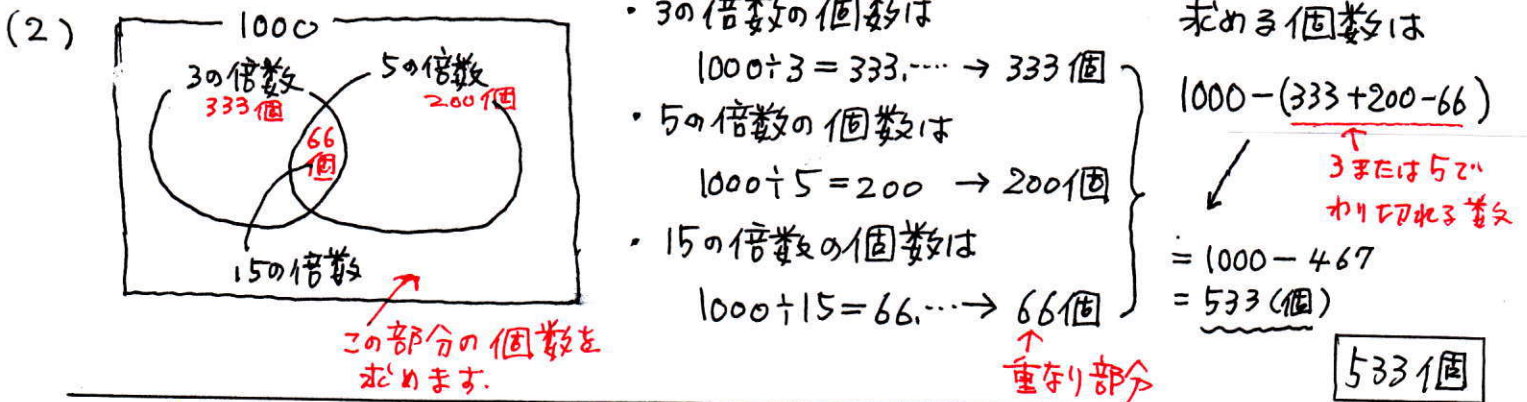 (2)
1000
3の倍数
333個
5の倍数
200個
66
個
15の倍数
この部分の個数を
求めます.
・3の倍数の個数は
1000÷3=333.…… → 333個
・5の倍数の個数は
1000÷5=200 → 200個
・15の倍数の個数は
1000÷15=66.…… → 66個
↑
重なり部分
求める個数は
1000-(333+200-66)
↑
3または5で
わり切れる数
=1000-467
=533(個)
533個